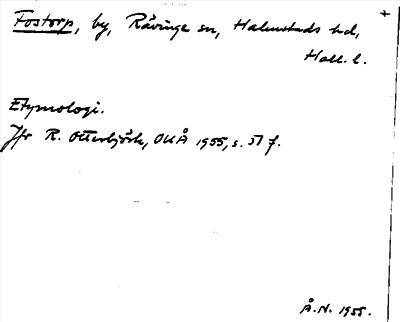 Fostorp, by, Rävinge sn, Halmstads hd,
Hall. l.
Etymologi.
Jfr R. Otterbjörk, OUÅ 1955, s. 57 f.
Å.N. 1955.